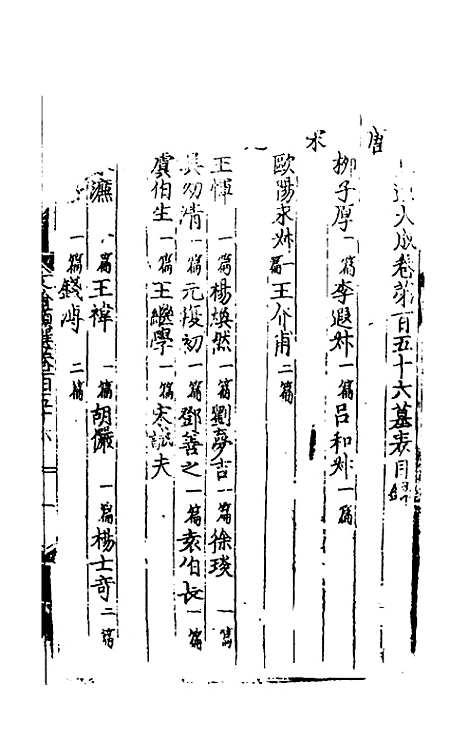 大成卷第百五十六墓表目録
唐
柳子厚一篇李遐叔一篇呂和叔一篇
宋
歐陽永叔一篇王介甫二篇
元
王惲一篇楊煥然一篇劉夢吉一篇徐琰一篇
吳幼清一篇元復初一篇鄧善之一篇袁伯長一篇
虞伯生一篇王繼學一篇宋誠夫
濂 篇王褘一篇胡儼一篇楊士奇二篇
一篇錢溥二篇